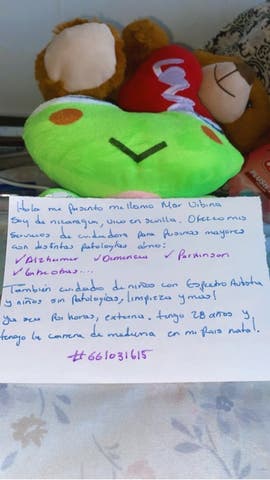 Hola me presento me llamo Mar Urbina
Soy de nicaragua, vivo en sevilla. Ofrezco mis
servicios de cuidadora para personas mayores
con distintas patologías cómo:
✓Alzheimer ✓Demencias ✓Parkinson
✓entre otras...
También cuidado de niños con Espectro Autista
y niños sin Patologías, limpieza y mas!
Ya sea Por horas, externa. tengo 28 años y
tengo la carrera de medicina en mi País natal.
#661031615